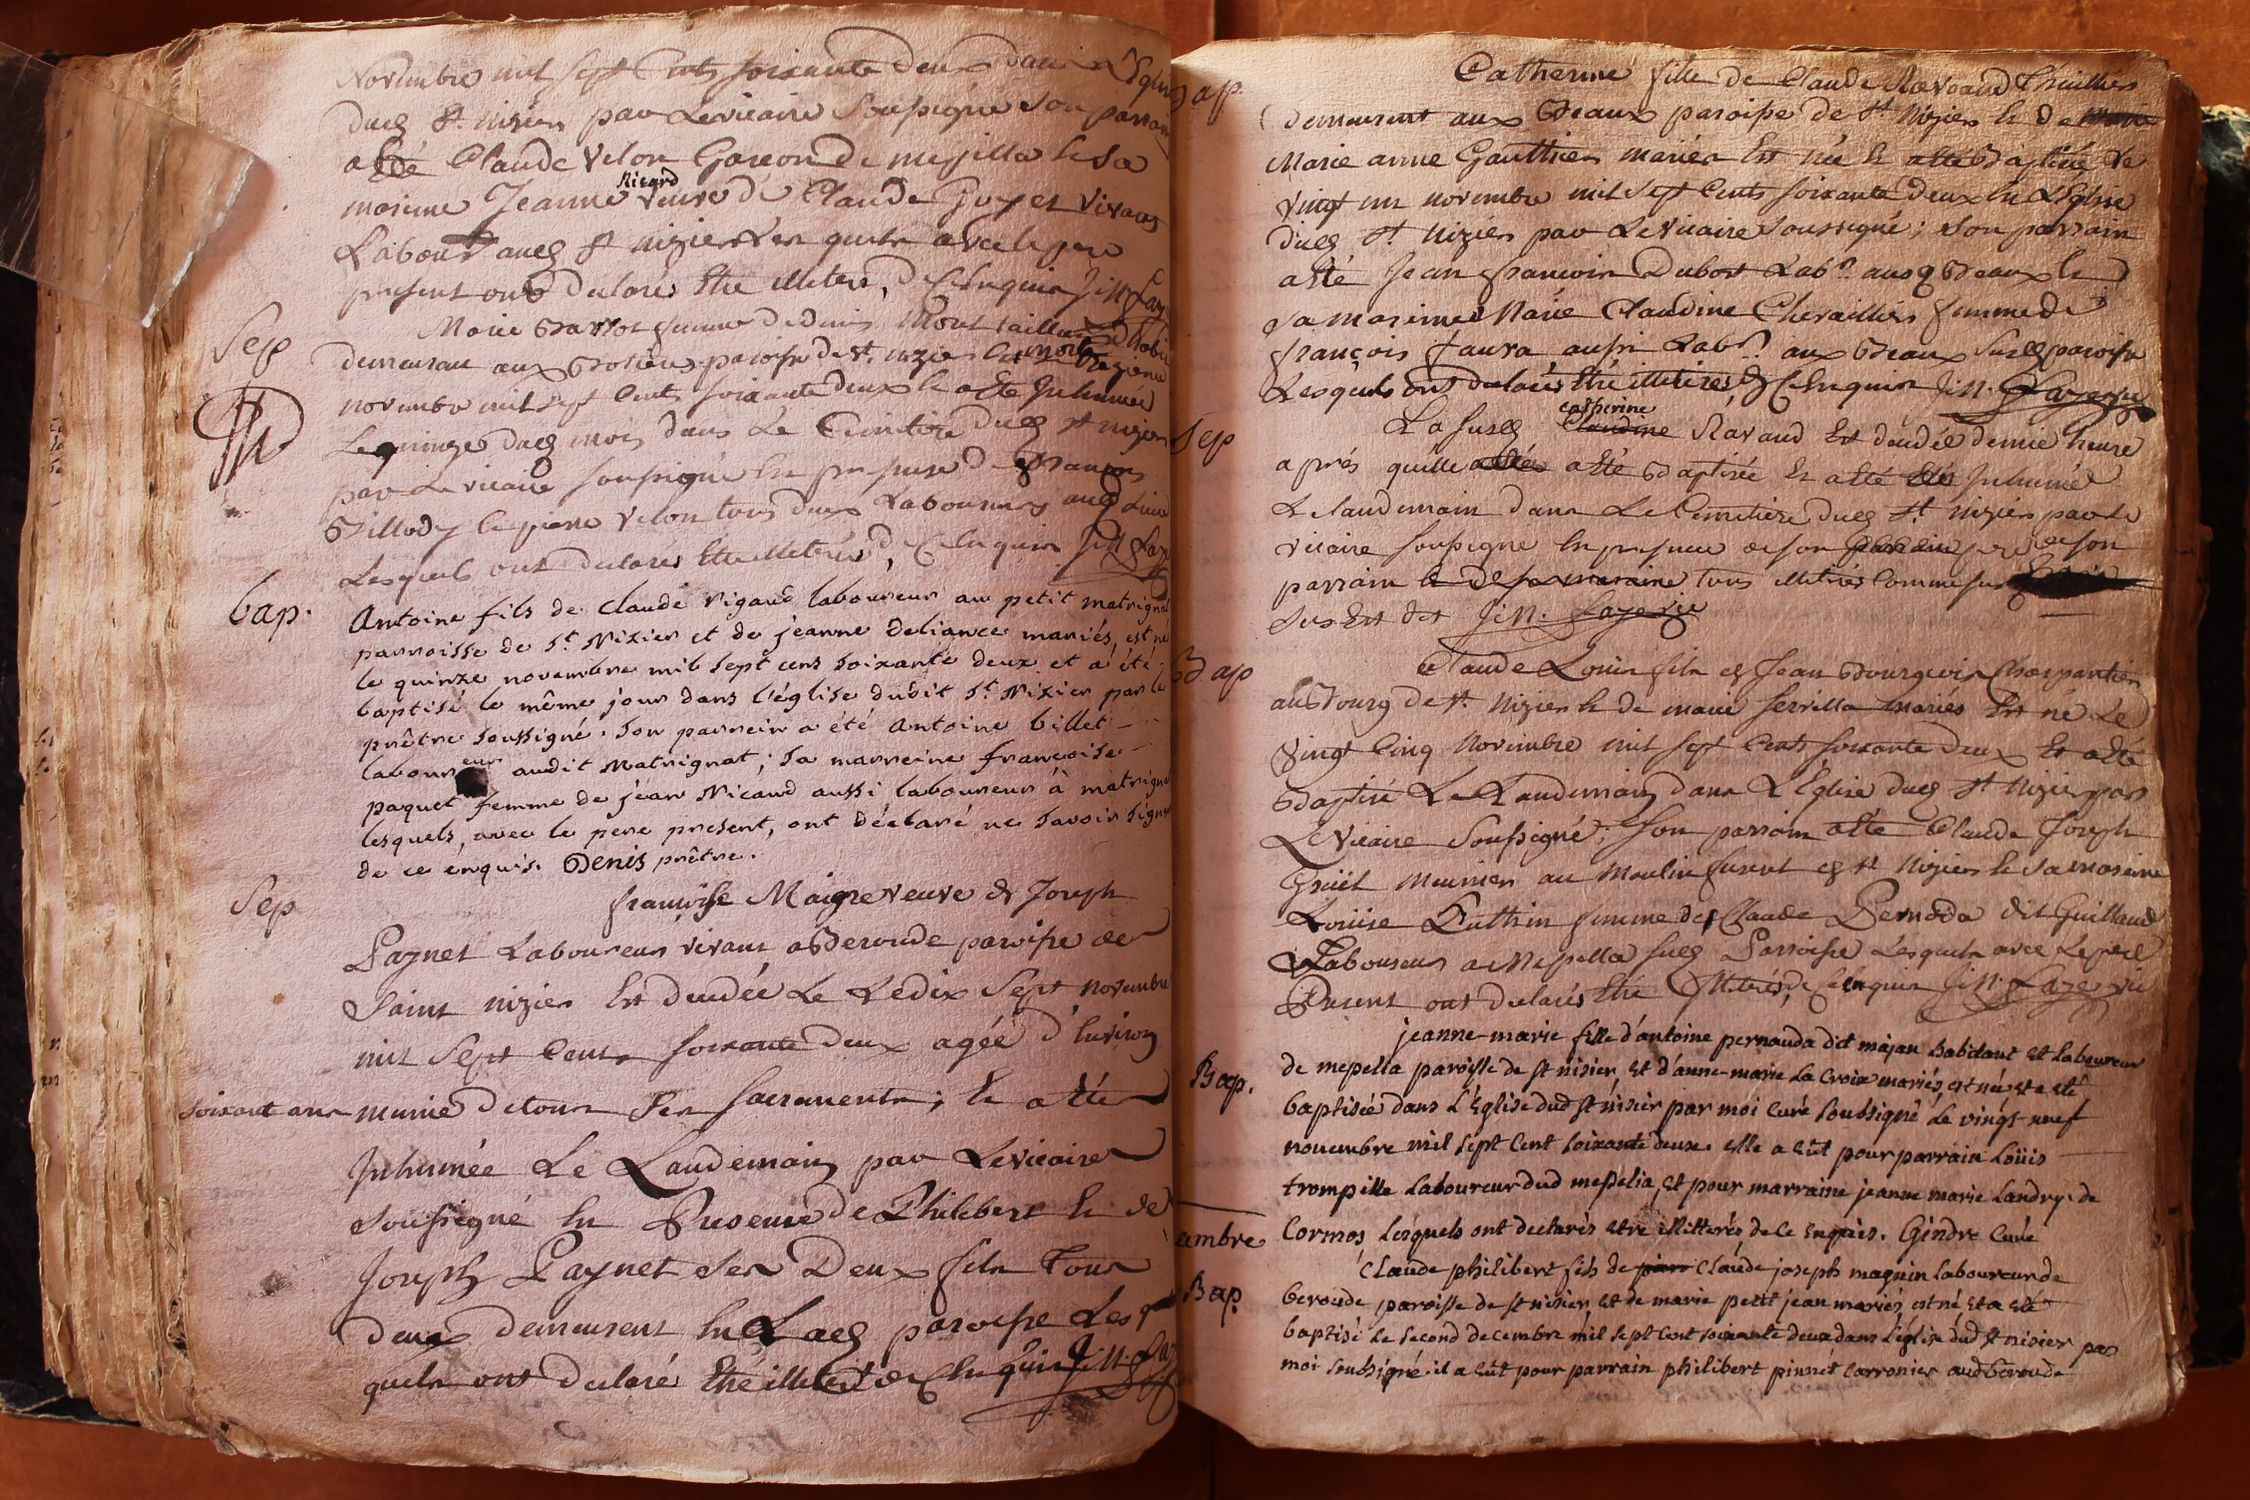 Novembre mil sept Cents soixante deux dans l'Eglise
dudt St. nizier par Le vicaire Soussigné Son parrain
a Eté Claude Velon Garcon de mepilla Et Sa
maraine Jeanne Nicard veuve de Claude Guyet vivant
Labour audt St nizier Les quels avec le pere
present ont declarés Etre illiterés, de ce Enquis J: N: Lay
Sep
Marie femme de denis
demeurant aux paroisse de St. nizier Est morte
novembre mil sept Cents soixante deux Et a Eté Inhumée
Le quinze dudt mois dans Le Cimitiere dudt St nizier
par Le vicaire soussigné En presence de
Billoud Et pierre Velon tous deux Laboureurs audt Lieu
Lesquels ont declarés Etre illiterés, de ce Enquis J: N: Lay
bap.
Antoine fils de Claude rigaud laboureur au petit matrignat
parroisse de St Nixier et de jeanne Deliance mariés, est né
le quinze novembre mil sept cens soixante deux et a été
baptisé le même jour dans l'église dudit St Nixier par le
prêtre soussigné. Son parrein a été Antoine billet
laboureur audit Matrignat; sa marreine françoise
paquet femme de jean Nicaud aussi laboureur à matrignat
lesquels, avec le pere present, ont déclaré ne savoir signer
de ce enquis. Denis prêtre.
Sep
françoise Maigre veuve de Joseph
Paynet Laboureur vivant a Beroude paroisse de
Saint nizier Est decedée Le Le dix Sept novembre
mil Sept Cents soixante deux agée d'Environ
soixant ans munie de tous Ses sacrements; Et a Eté
Inhumée Le Laudemain par Le vicaire
soussigné En Presence de Philibert Et de
Joseph Paynet Ses Deux fils Tous
deux demeurent En Ladt paroisse Les q
quels ont declaré Etre illiterés de ce Enquis J: N: Lay
Bap.
Catherine fille de Claude Ravaud
demeurant aux Beaux paroisse de St. Nizier Et de
Marie anne Gauthier mariés Est née Et a Eté Baptisée Le
Vingt un novembre mil Sept Cents soixante deux En L'Eglise
dudt St. Nizier par Le Vicaire Soussigné; Son parrain
a Eté Jean francois Dubost Labr. ausdt Beaux Et
Sa maraine Marie Claudine Chevaillier femme de
françois Faura aussi Labr. aux Beaux Susdt paroisse
Lesquels ont declarés Etre illiterés, de ce Enquis J: N: Layerie
Sep
La susdt Claudine catherine Ravaud Est decedée demie heure
aprés quelle a Eté Baptisée Et a Eté Inhumée
Le Laudemain dans Le Cimitiere dudt St. nizier par Le
vicaire soussigné En presence de son pere de son
parrain Et de sa maraine tous illiterés Comme
sus Est dit J: N: Layerie
Bap
Claude Louis fils de Jean Bourgeois Charpentier
au Bourg de St. Nizier Et de marie servilla mariés Est né Le
Vingt Cinq Novembre mil sept Cents soixante deux Et a Eté
Baptisé Le Laudemain dans L'Eglise dudt St Nizier par
Le Vicaire Soussigné; Son parrain a Eté Claude Joseph
meunier au Moulin de St Nizier Et Sa maraine
Louise Buthin femme de Claude Pernoda dit Guilland
Laboureur a Mepella susdt Parroisse Lesquels avec Le pere
Present ont declarés Etre Illiterés, de ce Enquis J: N: Layerie
Bap.
jeanne-marie fille d'antoine pernauda dit majan habitant et laboureur
de mepella paroisse de st nisier, et d'anne-marie La croix mariés, est née et a eté
baptisée dans l'Eglise dud st nisier par moi curé soubsigné Le vingt-neuf
novembre mil sept cent soixante deux. elle a eût pour parrain Loüis
trompille Laboureur dud mepella, et pour marraine jeanne marie Landry. de
Cormos, lesquels ont declarés etre illitterés de ce enquis. Gindre curé
cembre
Bap.
Claude philibert fils de Claude joseph maguin laboureur de
beroude paroisse de st nisier, et de marie petit jean mariés, est né et a eté
baptisé le second decembre mil sept cent soixante deux dans l'église dud st nisier par
moi soubsigné. il a eût pour parrain philibert pinnet carronier aud beroude